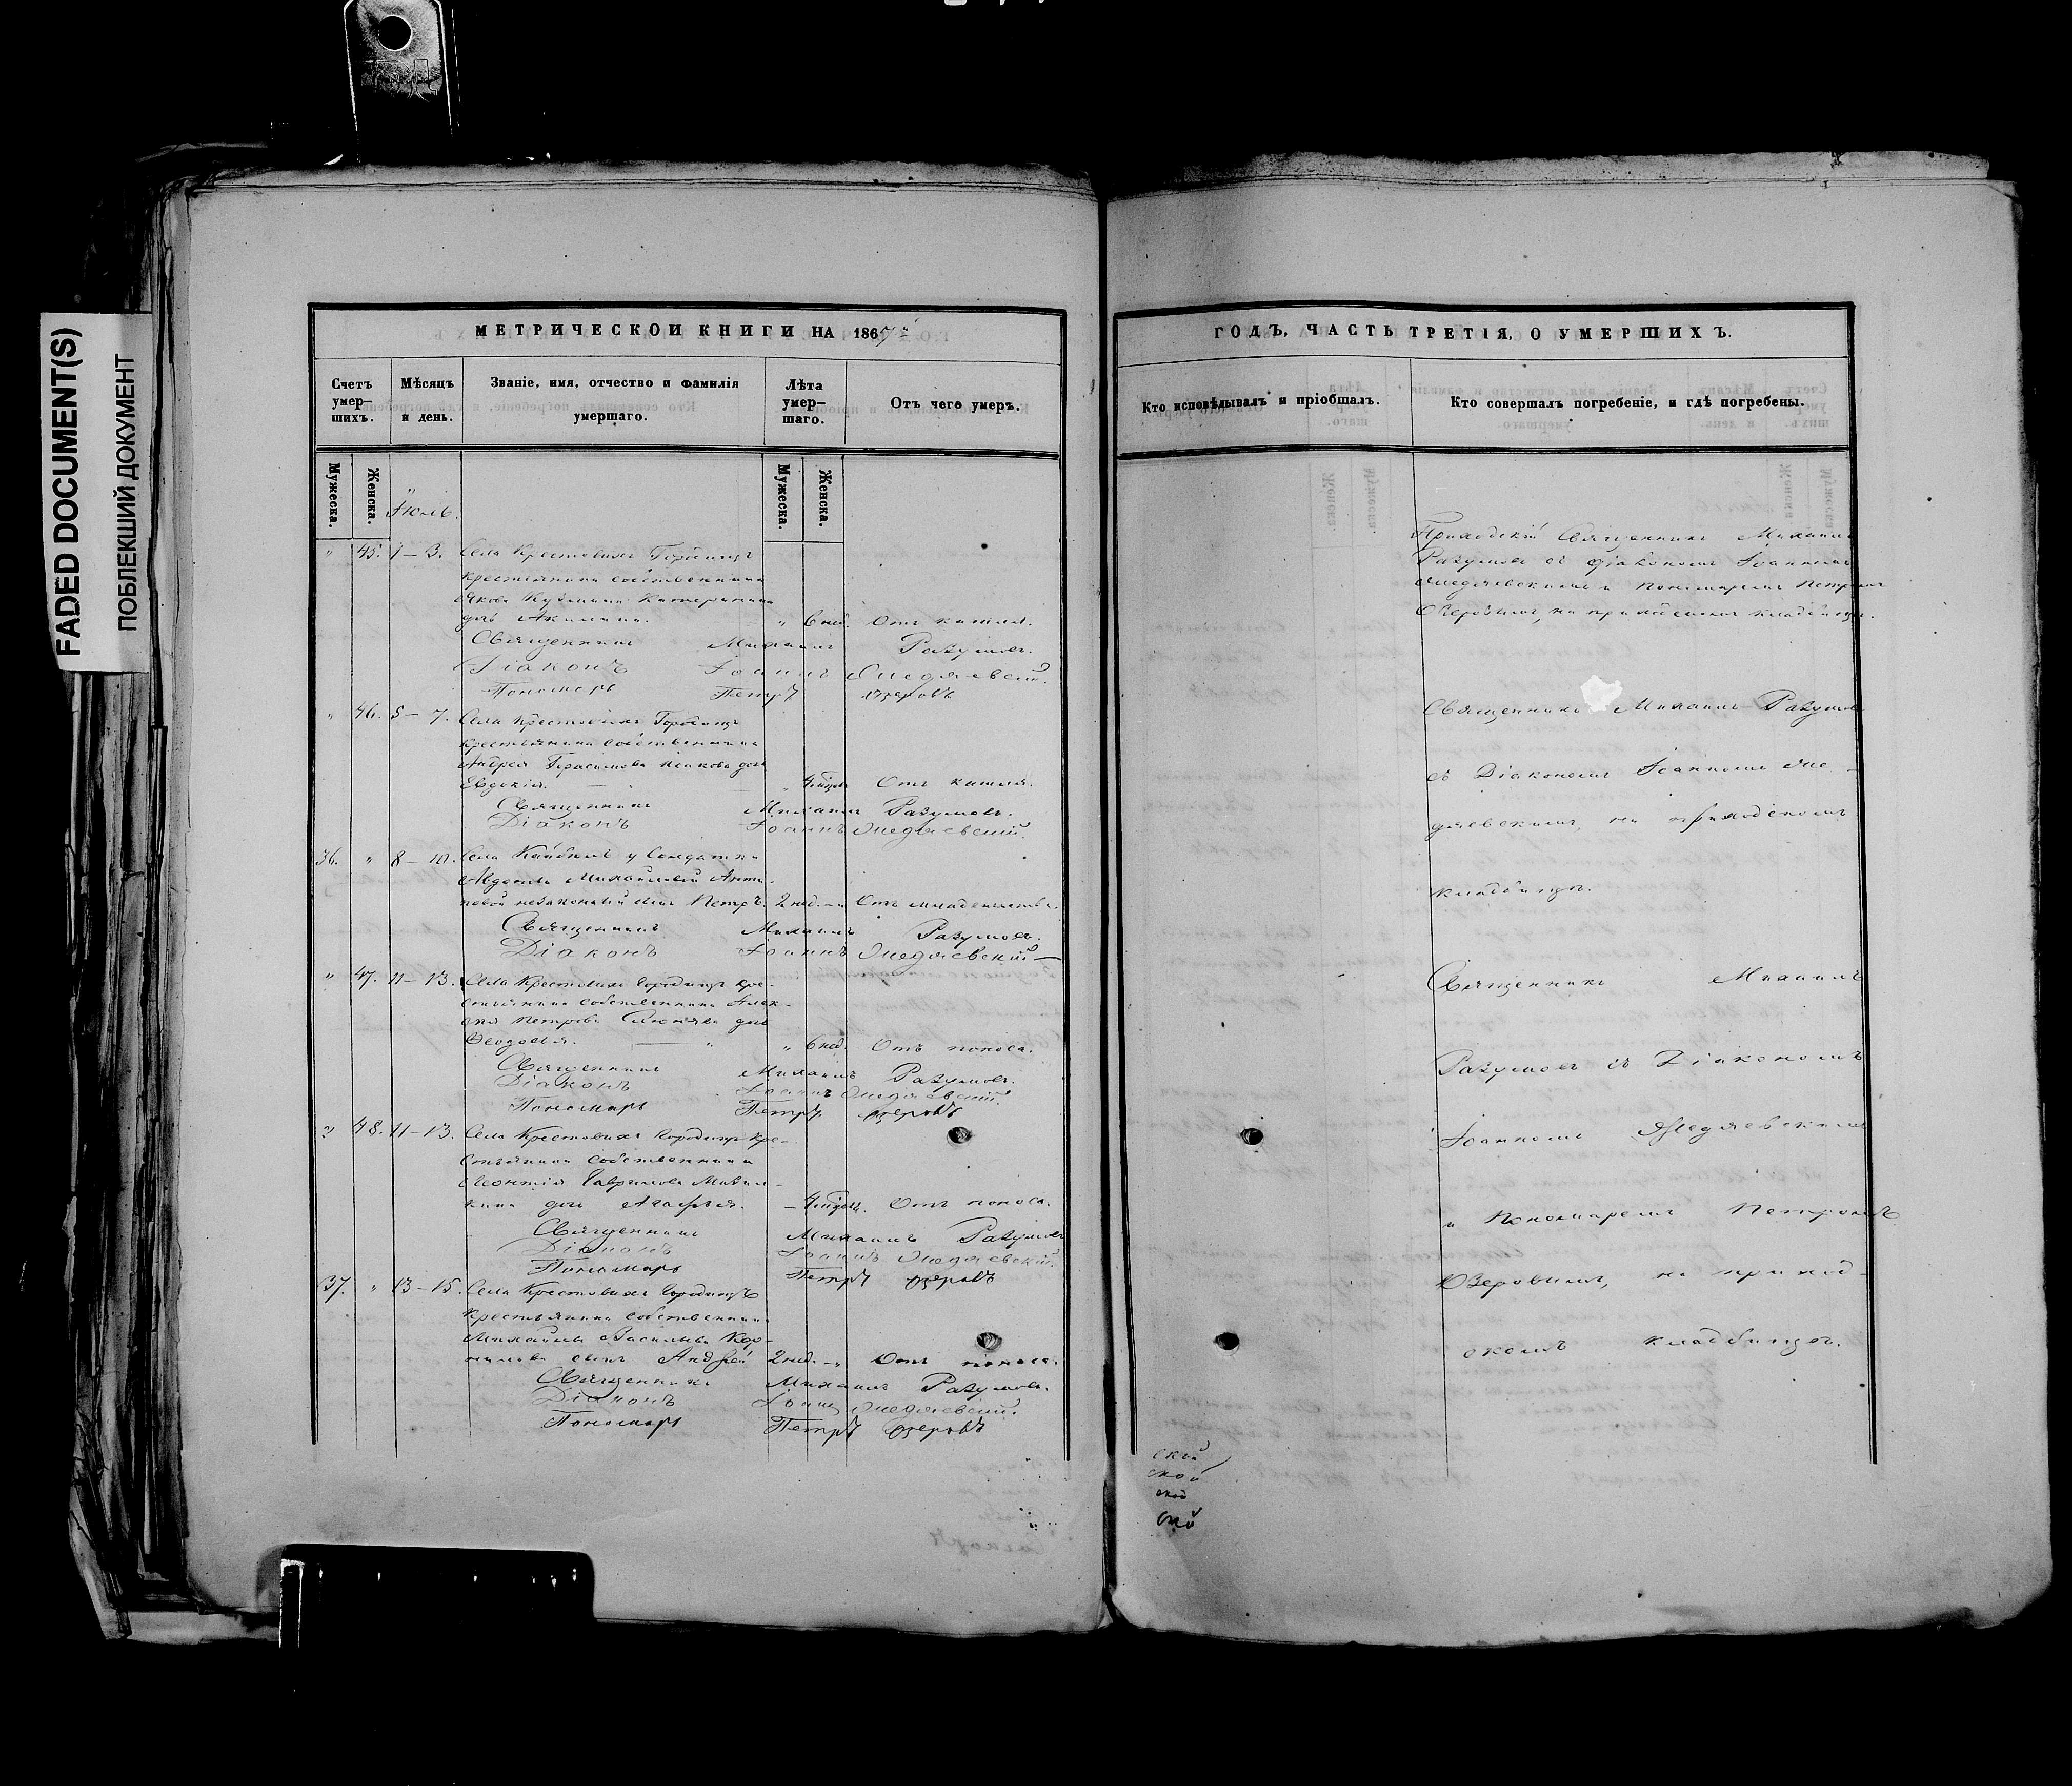 FADED DOCUMENT(S)
ПОБЛЕКШИЙ ДОКУМЕНТ
МЕТРИЧЕСКОИ КНИГИ НА 1867
Счетъ умер-шихъ.
Мѣсяцъ и день.
Званіе, имя, отчество и фамилія умершаго.
Лѣта умер-шаго.
Отъ чего умеръ.
Мужеска.
Женска.
Мужеска.
Женска.
" 45. 1–3. Села Крестовыхъ Городищъ
крестьянина собственника
Якова Кузьмина
дочь Акилина. " 6 нед. Отъ кашля.
Священникъ Михаилъ Разумовъ.
Діаконъ Іоаннъ
Пономарь Петръ Озеровъ
" 46. 5–7. Села Крестовыхъ Городищъ
крестьянина собственника
Андрея Герасимова Исакова дочь
Евдокія. " Отъ кашля.
Священникъ Михаилъ Разумовъ.
Діаконъ Іоаннъ
36. " 8–10. Села у Солдатки
Михайловой
незаконный сынъ Петръ 2 нед. – " Отъ младенчества.
Священникъ Михаилъ Разумовъ.
Діаконъ Іоаннъ
" 47. 11–13. Села Крестовыхъ Городищъ кре-
стьянина собственника Алек-
сѣя Петрова дочь
Ѳеодосья. " 6 нед. Отъ поноса.
Священникъ Михаилъ Разумовъ.
Діаконъ Іоаннъ
Пономарь Петръ Озеровъ
" 48. 11–13. Села Крестовыхъ Городищъ кре-
стьянина собственника
Леонтія Гаврилова
дочь Агафья. – Отъ поноса.
Священникъ Михаилъ Разумовъ
Діаконъ Іоаннъ
Пономарь Петръ Озеровъ
37. " 13–15. Села Крестовыхъ Городищъ
крестьянина собственника
Михаила Васильева Кор-
нилова сынъ Андрей 2 нед. – " Отъ поноса.
Священникъ Михаилъ Разумовъ.
Діаконъ Іоаннъ
Пономарь Петръ Озеровъ
ГОДЪ, ЧАСТЬ ТРЕТІЯ, О УМЕРШИХЪ.
Кто исповѣдывалъ и пріобщалъ.
Кто совершалъ погребеніе, и гдѣ погребены.
Приходскій Священникъ Михаилъ
Разумовъ съ діакономъ Іоанномъ
и пономаремъ Петромъ
Озеровымъ, на приходскомъ кладбищѣ.
Священникъ Михаилъ Разумовъ
съ Діакономъ Іоанномъ
на приходскомъ
кладбищѣ.
Священникъ Михаилъ
Разумовъ съ Діакономъ
Іоанномъ
и Пономаремъ Петромъ
Озеровымъ, на приход-
скомъ кладбищѣ.